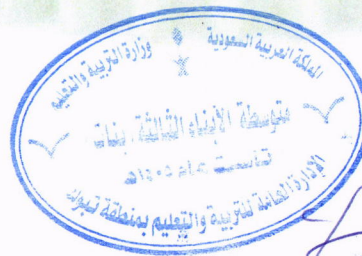 المملكة العربية السعودية
وزارة التربية والتعليم
متوسطة الأبناء الثالثة . بنات
تأسست عام ١٤٠٥هـ
الإدارة العامة للتربية والتعليم بمنطقة تبوك